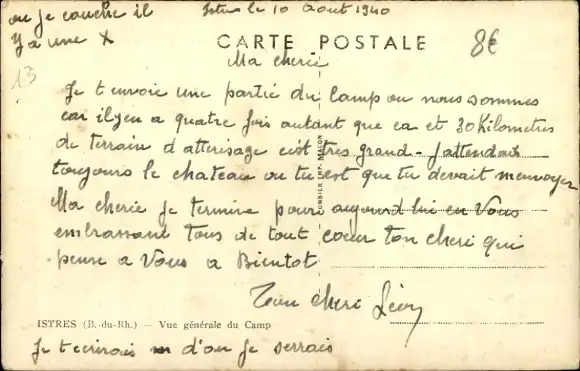 ou je couche il
y a une X
Istres le 10 Aout 1940
13
CARTE POSTALE
8€
Ma cherie
Je t envoie une partie du Camp ou nous sommes
car il y en a quatre fois autant que ca et 30 Kilometres
de terrain d atterisage cest tres grand - J attendais
toujours le chateau ou tu est que tu devait menvoyer
Ma cherie Je termine pour aujourd hui en Vous
embrassant Tous de tout coeur ton cheri qui
pense a Vous a Bientot
Ton cheri Léon
ISTRES (B.-du-Rh.) — Vue générale du Camp
Je t ecrirais d'ou je serrais